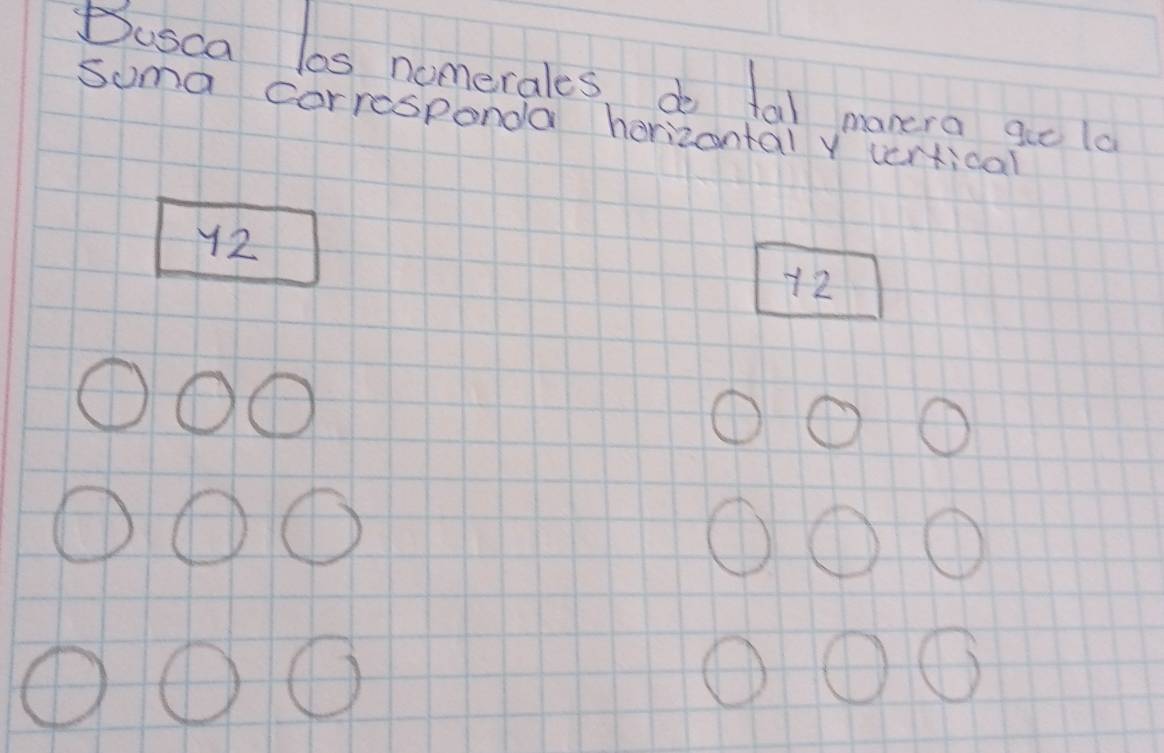 Busca los numerales de tal manera que la
suma corresponda horizontal y vertical
12
12